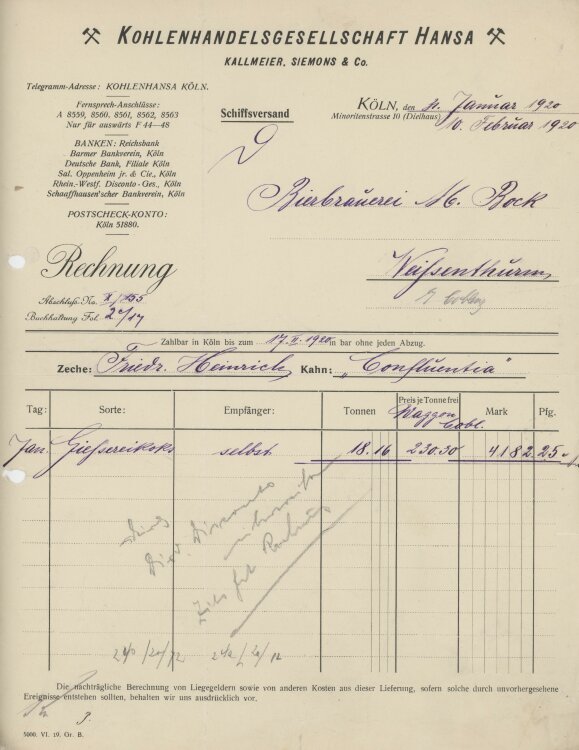 KOHLENHANDELSGESELLSCHAFT HANSA
KALLMEIER, SIEMONS & Co.
Telegramm-Adresse: KOHLENHANSA KÖLN.
Fernsprech-Anschlüsse:
A 8559, 8560. 8561, 8562, 8563
Nur für auswärts F 44—48
BANKEN: Reichsbank
Barmer Bankverein, Köln
Deutsche Bank, Filiale Köln
Sal. Oppenheim jr. & Cie., Köln
Rhein.-Westf. Disconto-Ges., Köln
Schaaffhausen'scher Bankverein, Köln
POSTSCHECK-KONTO:
Köln 51880.
Schiffsversand
KÖLN, den 31. Januar 1920
Minoritenstrasse 10 (Dielhaus) 10. Februar 1920
Bierbrauerei M. Bock
Weißenthurm,
Rechnung
Abschluß-No.
Buchhaltung Fol.
Zahlbar in Köln bis zum 17. II. 1920 in bar ohne jeden Abzug.
Zeche: Friedr. Heinrich Kahn: „Confluentia"
Tag: Sorte: Empfänger: Tonnen Preis je Tonne frei Waggon Cobl. Mark Pfg.
Jan. Giessereikoks selbst 18.16 230.30 4182.25
Die nachträgliche Berechnung von Liegegeldern sowie von anderen Kosten aus dieser Lieferung, sofern solche durch unvorhergesehene
Ereignisse entstehen sollten, behalten wir uns ausdrücklich vor.
5000. VI. 19. Gr. B.